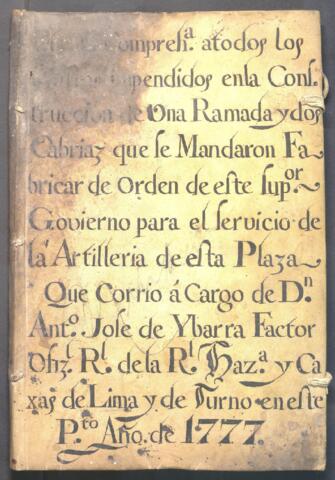 Compresh.ª atodos los
Impendidos enla Cons-
truccion de Una Ramada y dos
Cabriaz que se Mandaron Fa-
bricar de Orden de este Sup.or
Govierno para el servicio de
la Artilleria de esta Plaza
Que Corrio á Cargo de D.n
Ant.o Jose de Ybarra Factor
Ofiz.l R.l de la R.l Haz.a y Ca
xas de Lima y de Turno en este
P.to Año. de 1777.